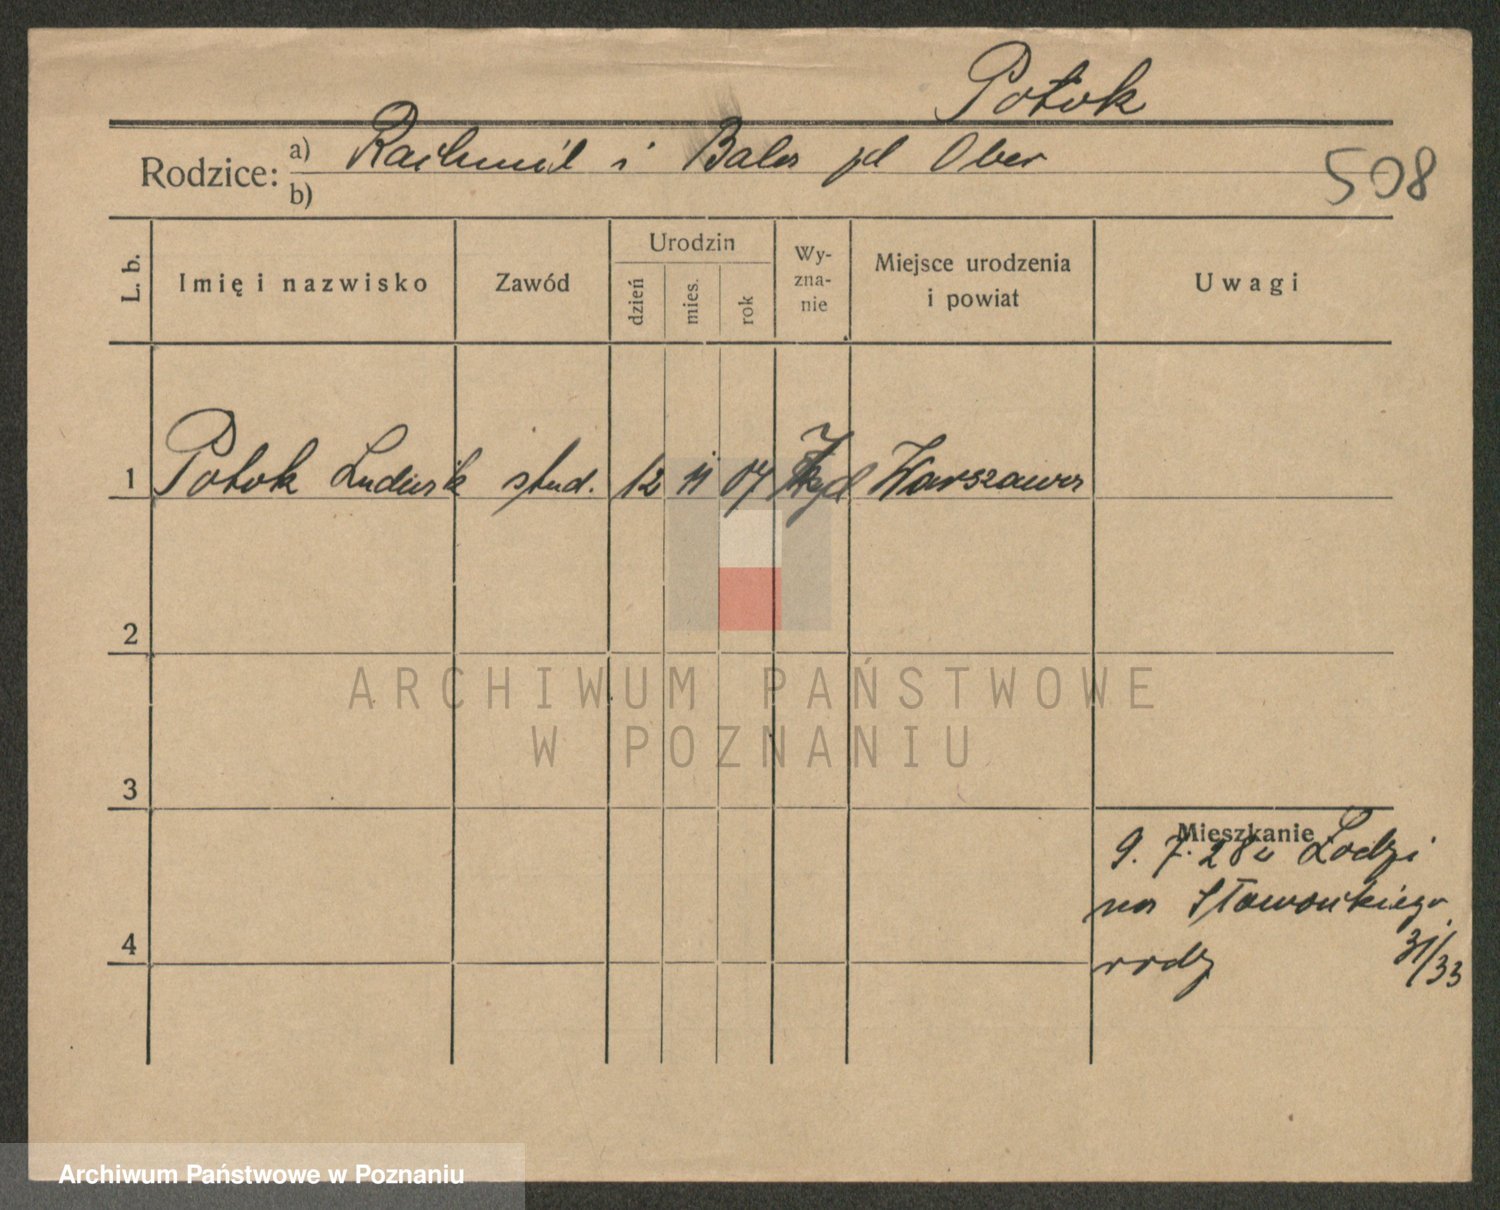 Potok
Rodzice: a) Rachmil i Bala pd Ober
b)
508
L. b.
Imię i nazwisko
Zawód
Urodzin
dzień
mies.
rok
Wy-
zna-
nie
Miejsce urodzenia
i powiat
Uwagi
1 Potok Ludwik stud. 12 11 07 żyd Warszawa
2
ARCHIWUM PAŃSTWOWE
W POZNANIU
3
Mieszkanie
9. 7. 28 Łodzi
na
31/33
4
Archiwum Państwowe w Poznaniu